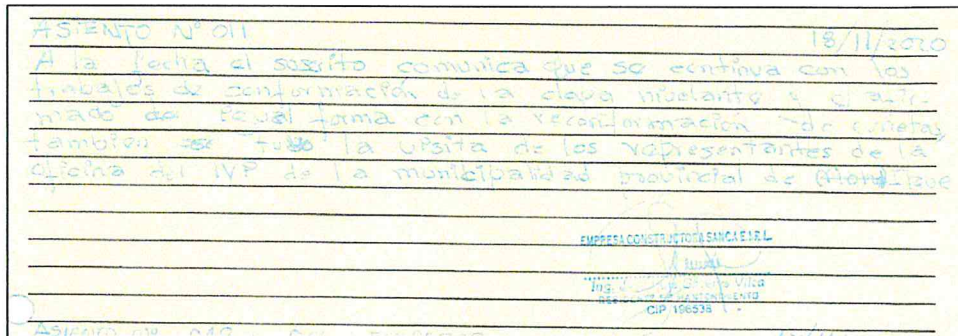 ASIENTO Nº 011 18/11/2020
A la fecha el suscrito comunica que se continua con los
trabajos de conformación de la capa nivelante y el afir-
mado de igual forma con la reconformación de cunetas,
tambien se tubo la visita de los representantes de la
oficina del IVP de la municipalidad provincial de
EMPRESA CONSTRUCTORA SANCA E.I.R.L.
Ing. Vilca
RESIDENTE DE MANTENIMIENTO
CIP 196538
ASIENTO Nº